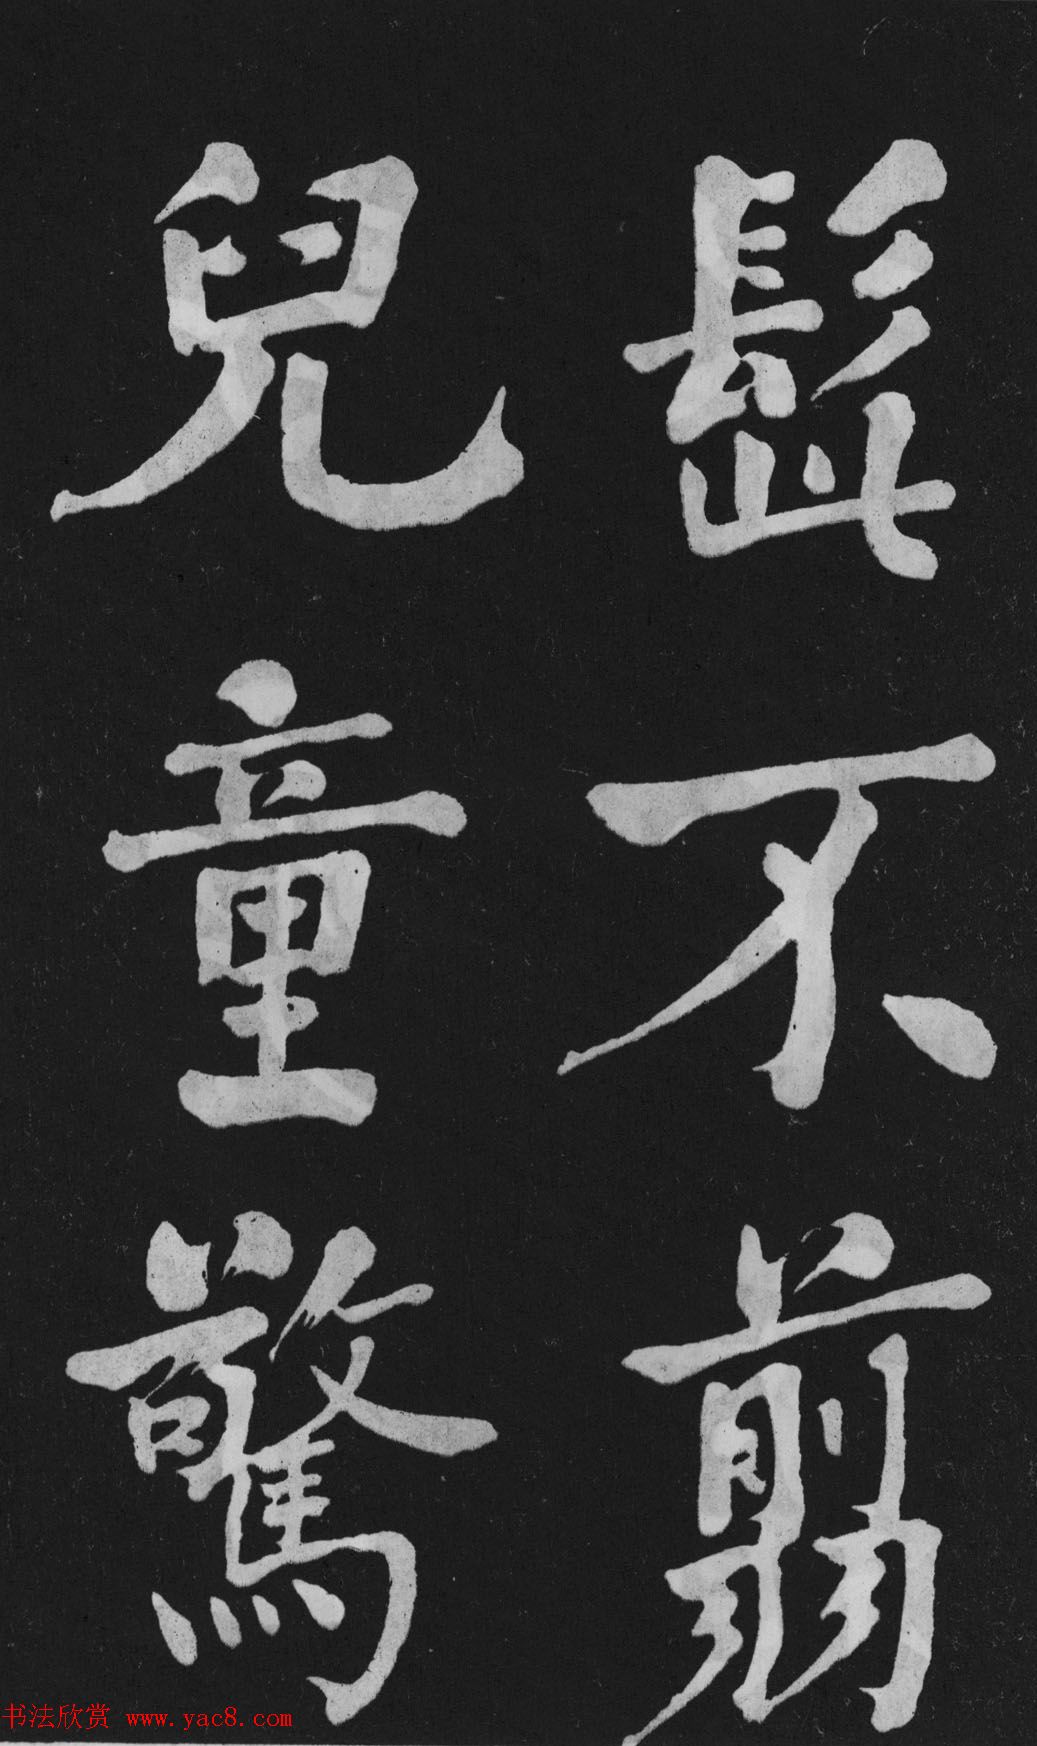 髭不翦
兒童驚
书法欣赏 www.yac8.com